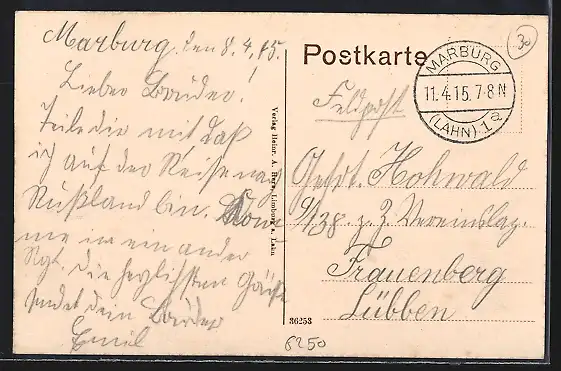 Marburg. den 8.4.15.
Lieber Bruder!
Teile dir mit daß
ich auf der Reise nach
Rußland bin. Kom-
me in ein ander
Rgt. Die herzlichsten Grüße
sendet dein Bruder
Emil
Verlag Heinr. A. Herz, Limburg a. Lahn
Postkarte
30
MARBURG
11.4.15.7-8N
(LAHN) 1a
Feldpost
Gefrt. Hohwald
z. Z. Vereinslaz.
Frauenberg
Lübben
36253
6250